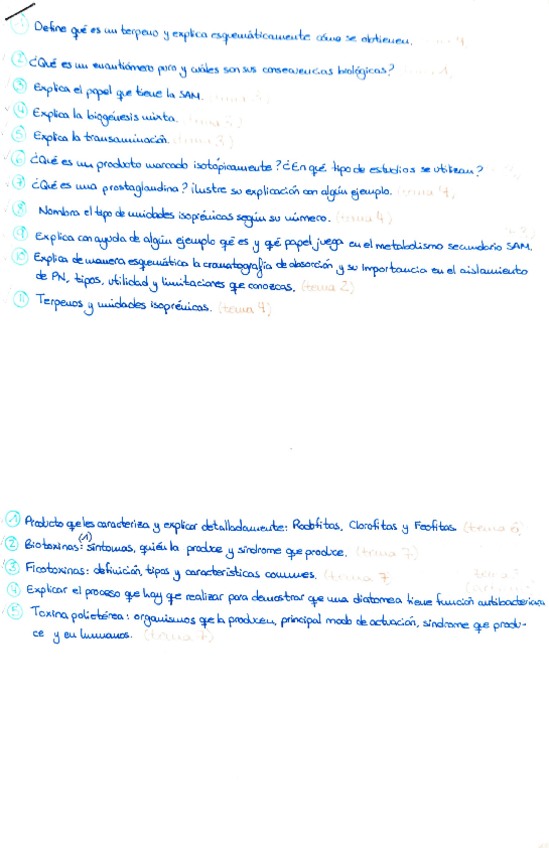 ① Define qué es un terpeno y explica esquemáticamente cómo se obtienen. tema 4
② ¿Qué es un enantiómero puro y cuáles son sus consecuencias biológicas?
③ Explica el papel que tiene la SAM.
④ Explica la biogénesis mixta.
⑤ Explica la transaminación. (tema 3)
⑥ ¿Qué es un producto marcado isotópicamente? ¿En qué tipo de estudios se utilizan?
⑦ ¿Qué es una prostaglandina? ilustre su explicación con algún ejemplo. (tema 4)
⑧ Nombra el tipo de unidades isoprénicas según su número. (tema 4)
⑨ Explica con ayuda de algún ejemplo qé es y qé papel juega en el metabolismo secundario SAM.
⑩ Explica de manera esquemática la cromatografía de absorción y su importancia en el aislamiento
de PN, tipos, utilidad y limitaciones que conozcas. (tema 2)
⑪ Terpenos y unidades isoprénicas. (tema 4)
① Producto qe les caracteriza y explicar detalladamente: Rodofitas, Clorofitas y Feofitas (tema 6)
② Biotoxinas: (1) síntomas, quién la produce y síndrome que produce. (tema 7)
③ Ficotoxinas: definición, tipos y características comunes. (tema 7)
④ Explicar el proceso que hay que realizar para demostrar que una diatomea tiene función antibacteriana
⑤ Toxina polietérea: organismos que la producen, principal modo de actuación, síndrome que produ-
ce y en humanos. (tema 7)